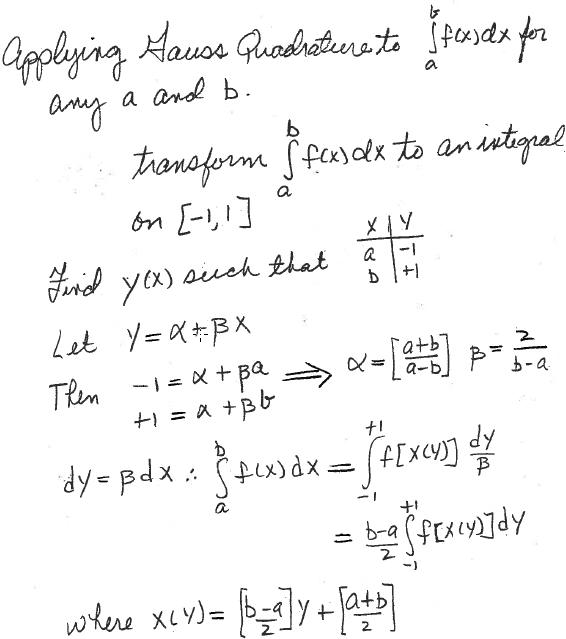 Applying Gauss Quadrature to ∫ₐᵇ f(x)dx for
any a and b.
transform ∫ₐᵇ f(x)dx to an integral
on [-1,1]
x | y
Find y(x) such that a | -1
b | +1
Let y = α + βx
Then -1 = α + βa ⟹ α = [a+b / a-b] β = 2 / b-a
+1 = α + βb
dy = βdx ∴ ∫ₐᵇ f(x)dx = ∫₋₁⁺¹ f[x(y)] dy/β
= b-a/2 ∫₋₁⁺¹ f[x(y)]dy
where x(y) = [b-a / 2]y + [a+b / 2]